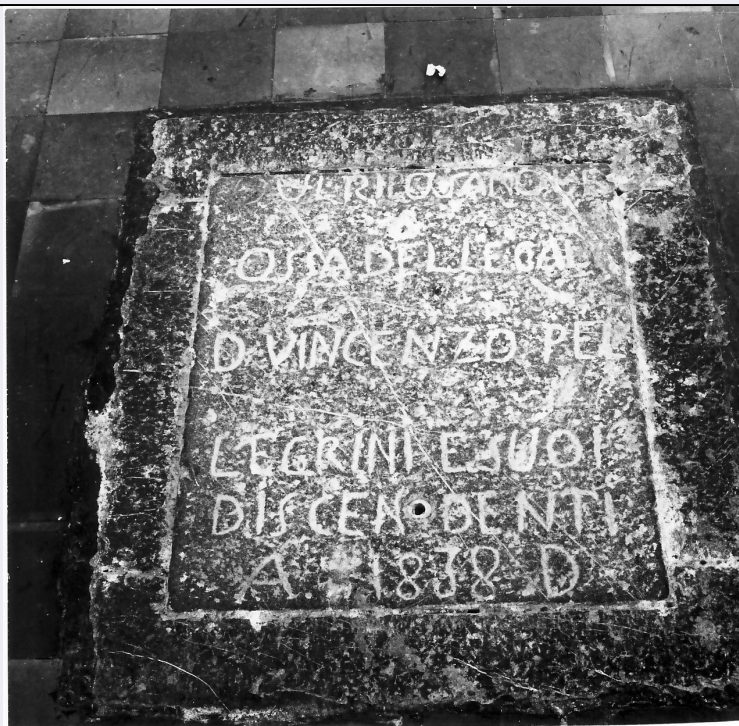 QUI RIPOSANO LE
OSSA DEL LEGAL
D. VINCENZO PEL
LEGRINI E SUOI
DISCENDENTI
A 1838 D